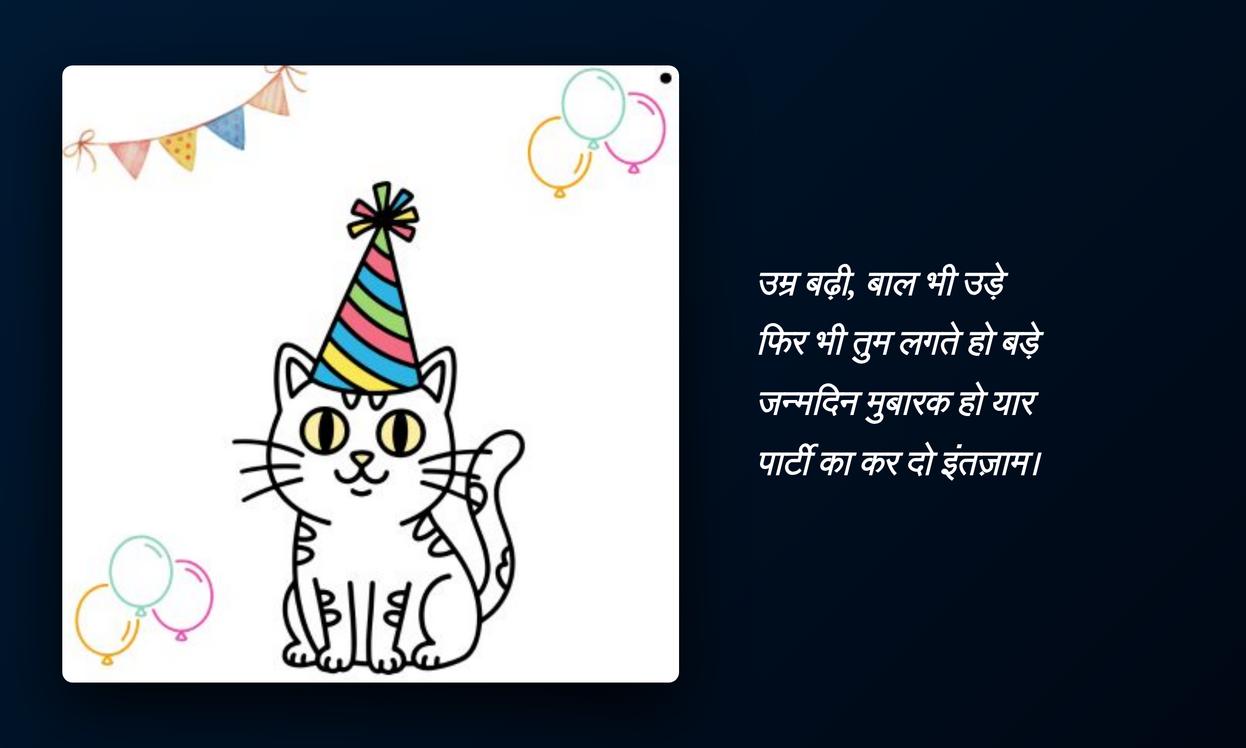 उम्र बढ़ी, बाल भी उड़े
फिर भी तुम लगते हो बड़े
जन्मदिन मुबारक हो यार
पार्टी का कर दो इंतज़ाम।